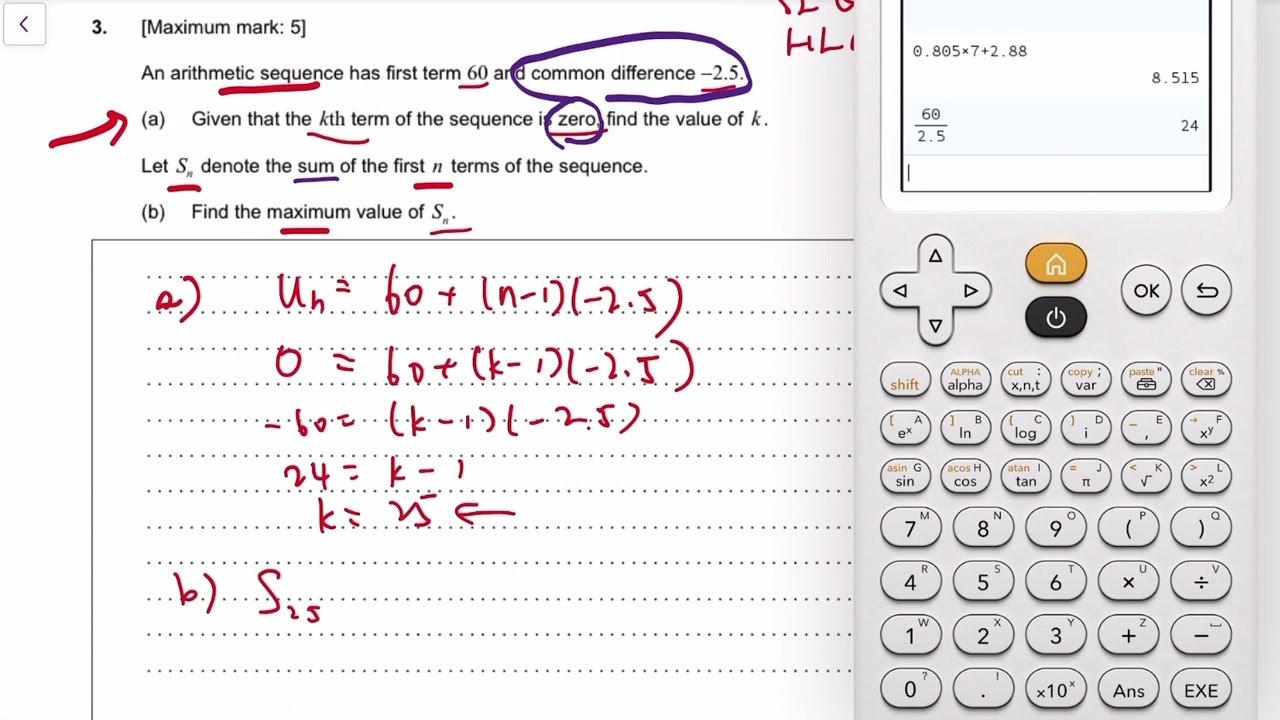 3. [Maximum mark: 5]
HL
An arithmetic sequence has first term 60 and common difference −2.5.
(a) Given that the kth term of the sequence is zero, find the value of k.
Let Sₙ denote the sum of the first n terms of the sequence.
(b) Find the maximum value of Sₙ.
a) uₙ = 60 + (n-1)(-2.5)
0 = 60 + (k-1)(-2.5)
-60 = (k-1)(-2.5)
24 = k - 1
k = 25 ←
b) S₂₅
0.805×7+2.88
8.515
60/2.5
24
OK
shift ALPHA alpha cut : x,n,t copy ; var paste " clear %
[ A eˣ ] B ln { C log } D i _ E , → F xʸ
asin G sin acos H cos atan I tan = J π < K √ > L x²
7 M 8 N 9 O ( P ) Q
4 R 5 S 6 T × U ÷ V
1 W 2 X 3 Y + Z −
0 ? . ! ×10ˣ Ans EXE